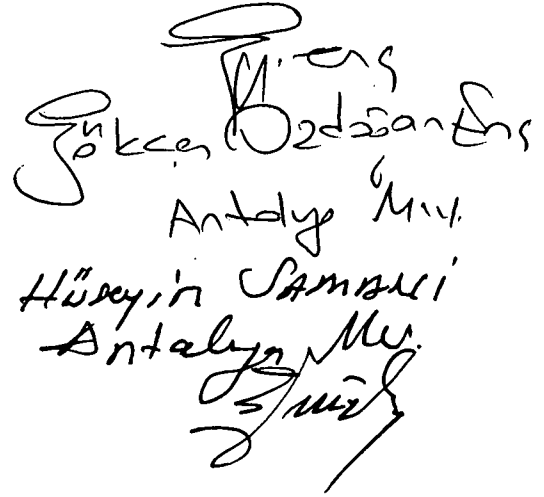 Gökçen Özdoğan Enç
Antalya Mv.
Hüseyin SAMANİ
Antalya Mv.